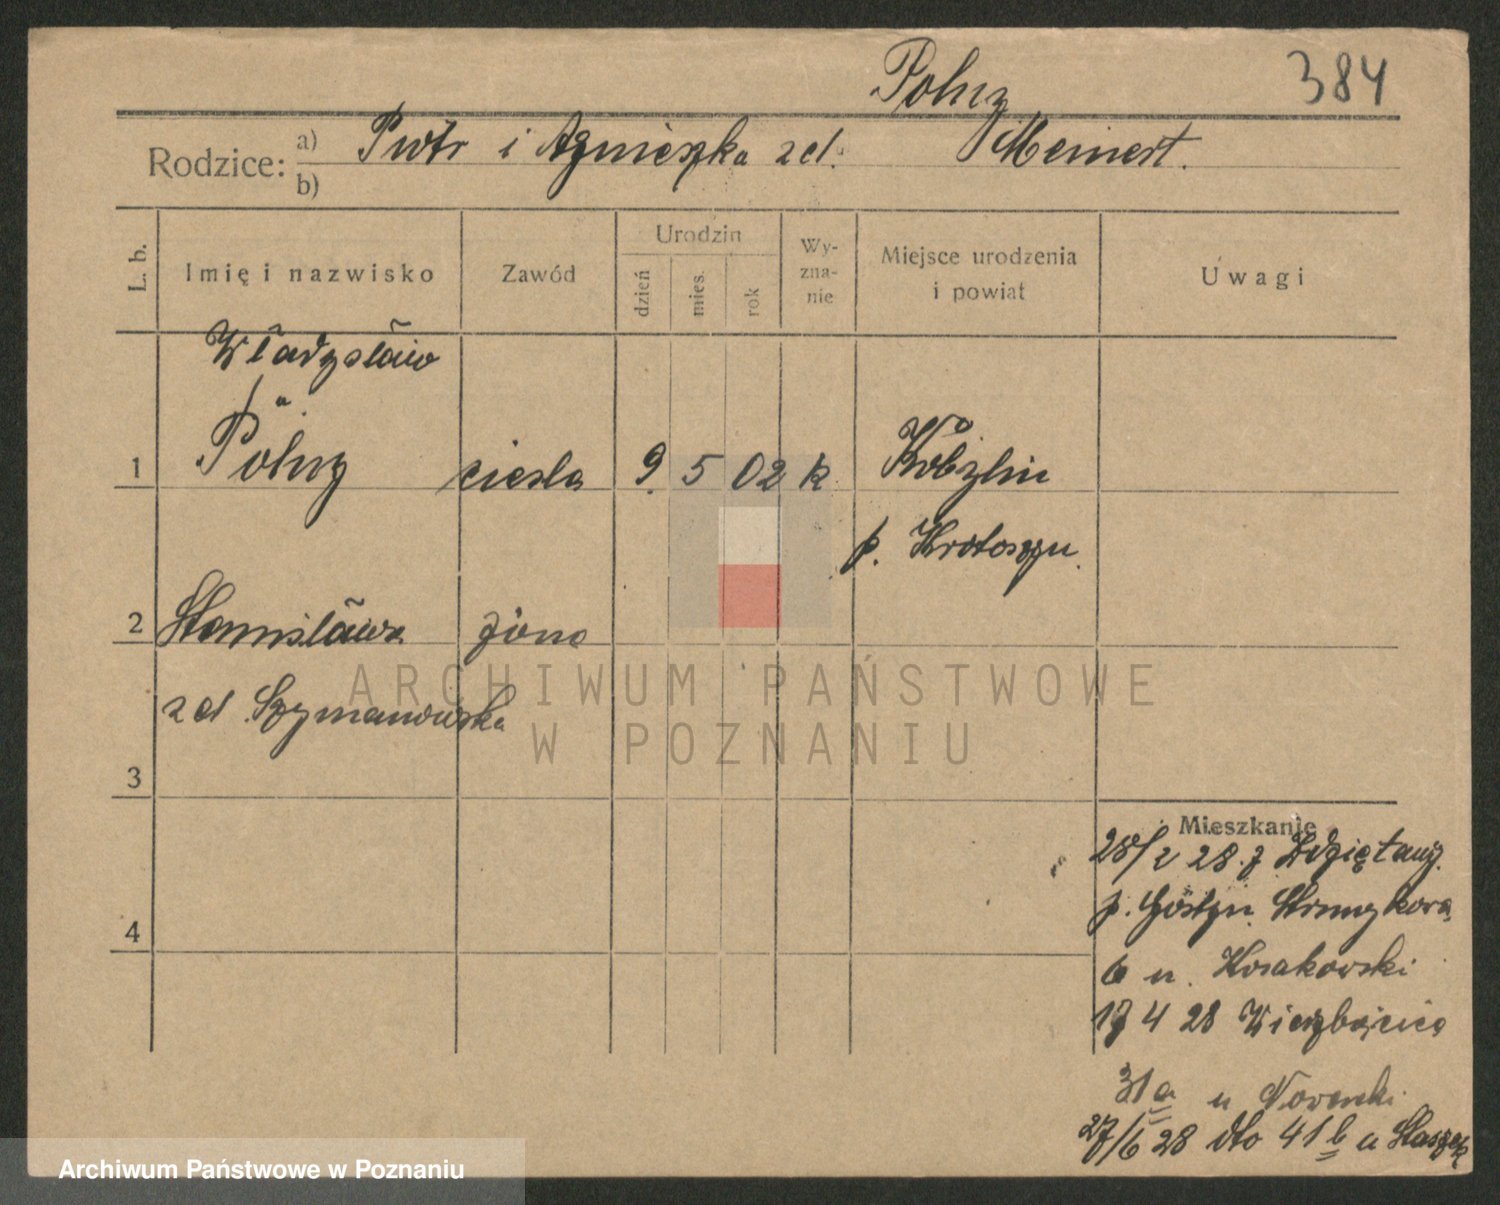 Polny 384
Rodzice: a) Piotr i Agnieszka zd. Meinert.
b)
L. b. Imię i nazwisko Zawód Urodzin dzień mies. rok Wy-zna-nie Miejsce urodzenia i powiat Uwagi
Władysław
1 Polny ciesla 9. 5 02 k Kobylin
p. Krotoszyn.
2 Stanisława żona
zd. Szymanowska
3
4
Mieszkanie
28/2 28. z
p. Gostyn. Strumykowa
6 u.
17 4 28 Wierzbięcice
31a u Nowacki
27/6 28 dto 41b u
ARCHIWUM PAŃSTWOWE
W POZNANIU
Archiwum Państwowe w Poznaniu